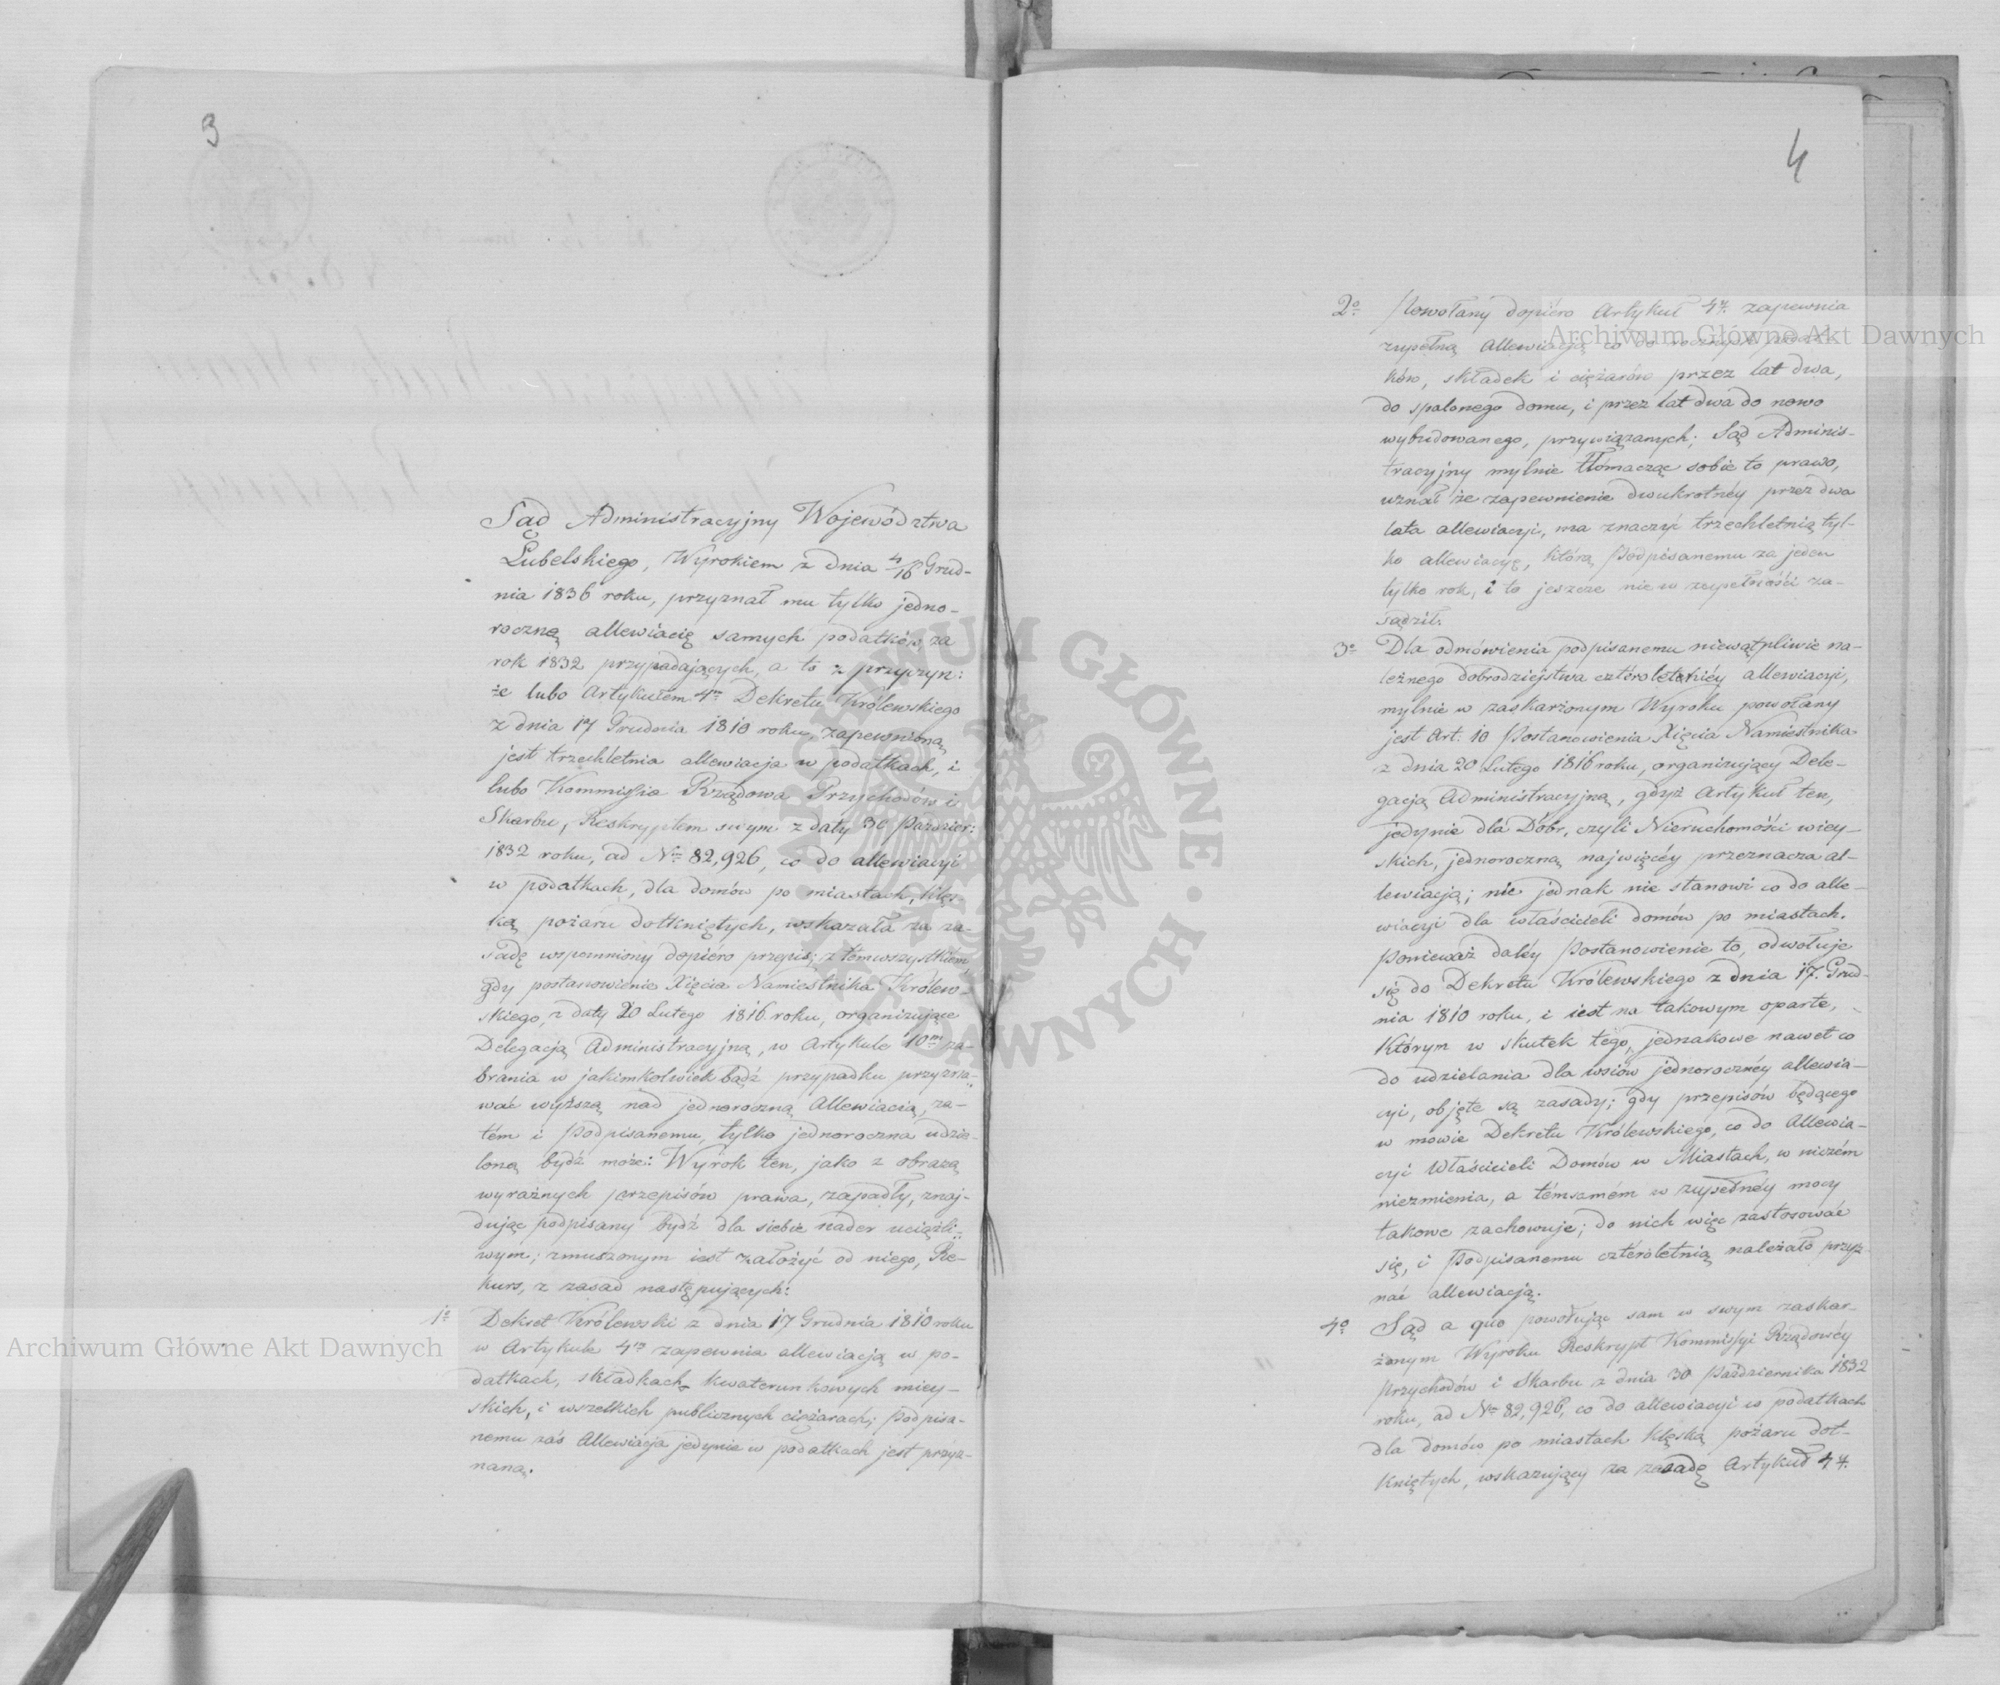 3
Sąd Administracyjny Województwa
Lubelskiego, Wyrokiem z dnia 4/16 Grud-
nia 1836 roku, przyznał mu tylko jedno-
roczną allewiacię samych podatków, za
rok 1832 przypadających, a to z przyczyn:
że lubo Artykułem 4m Dekretu Królewskiego
z dnia 17 Grudnia 1810 roku, zapewnioną
jest trzechletnia allewiacja w podatkach, i
lubo Kommissia Rządowa Przychodów i
Skarbu, Reskryptem swym z daty 30 Paździer:
1832 roku, ad Nm 82,926, co do allewiacyi
w podatkach, dla domów po miastach, klęs-
ką pożaru dotkniętych, wskazała za za-
sadę wspomniony dopiéro przepis; z témwszystkiém
gdy postanowienie Xięcia Namiestnika Królew-
skiego, z daty 20 Lutego 1816 roku, organizujące
Delegacją Administracyjną, w Artykule 10m za-
brania w jakimkolwiek bądź przypadku przyzna-
wać wyższą nad jednoroczną Allewiacią, za-
tém i Podpisanemu, tylko jednoroczna udzie-
loną bydź może: Wyrok ten, jako z obrazą
wyraźnych przepisów prawa, zapadły, znaj-
dując podpisany bydź dla siebie nader uciążli-
wym; zmuszonym iest założyć od niego, Re-
kurs, z zasad następujących:
1o Dekret Królewski z dnia 17 Grudnia 1810 roku
w Artykule 4m zapewnia allewiacją w po-
datkach, składkach kwaterunkowych miey-
skich, i wszelkich publicznych ciężarach; Podpisa-
nemu zaś Allewiacja jedynie w podatkach jest przyz-
naną.
4
2o Powołany dopiéro Artykuł 4m zapewnia
zupełną Allewiacją co do rocznych podat-
ków, składek i ciężarów przez lat dwa,
do spalonego domu, i przez lat dwa do nowo
wybudowanego, przywiązanych; Sąd Adminis-
tracyjny mylnie tłómacząc sobie to prawo,
uznał że zapewnienie dwukrotnéy przez dwa
lata allewiacyi, ma znaczyć trzechletnią tyl-
ko allewiacyę, którą Podpisanemu za jeden
tylko rok, i to jeszcze nie w zupełności za-
sądził.
3o Dla odmówienia podpisanemu niewątpliwie na-
leżnego dobrodziejstwa cztéroletniéy allewiacyi,
mylnie w zaskarżonym Wyroku powołany
jest Art: 10 Postanowienia Xięcia Namiestnika
z dnia 20 Lutego 1816 roku, organizujący Dele-
gacją Administracyjną, gdyż Artykuł ten,
jedynie dla Dóbr, czyli Nieruchomości wiey-
skich, jednoroczną najwięcéy przeznacza al-
lewiacją; nic jednak nie stanowi co do alle-
wiacyi dla właścicieli domów po miastach.
Ponieważ daléy Postanowienie to, odwołuje
się do Dekretu Królewskiego z dnia 17. Grud-
nia 1810 roku, i iest na takowym oparte,
Którym w skutek tego, jednakowe nawet co
do udzielania dla wsiów jednorocznéy allewia-
cyi, objęte są zasady; gdy przepisów będącego
w mowie Dekretu Królewskiego, co do Allewia-
cyi Właścicieli Domów w Miastach, w niczém
niezmienia, a témsamém w zupełnéy mocy
takowe zachowuje; do nich więc zastosować
się, i Podpisanemu cztéroletnią należało przyz-
nać allewiacją.
4o Sąd a quo powołując sam w swym zaskar-
żonym Wyroku Reskrypt Kommissyi Rządowéy
Przychodów i Skarbu z dnia 30 Października 1832
roku, ad Nm 82,926, co do allewiacyi w podatkach
dla domów po miastach klęską pożaru dot-
kniętych, wskazujący za zasadę Artykuł 4ty.
Archiwum Główne Akt Dawnych
Archiwum Główne Akt Dawnych
ARCHIWUM GŁÓWNE · AKT DAWNYCH ·